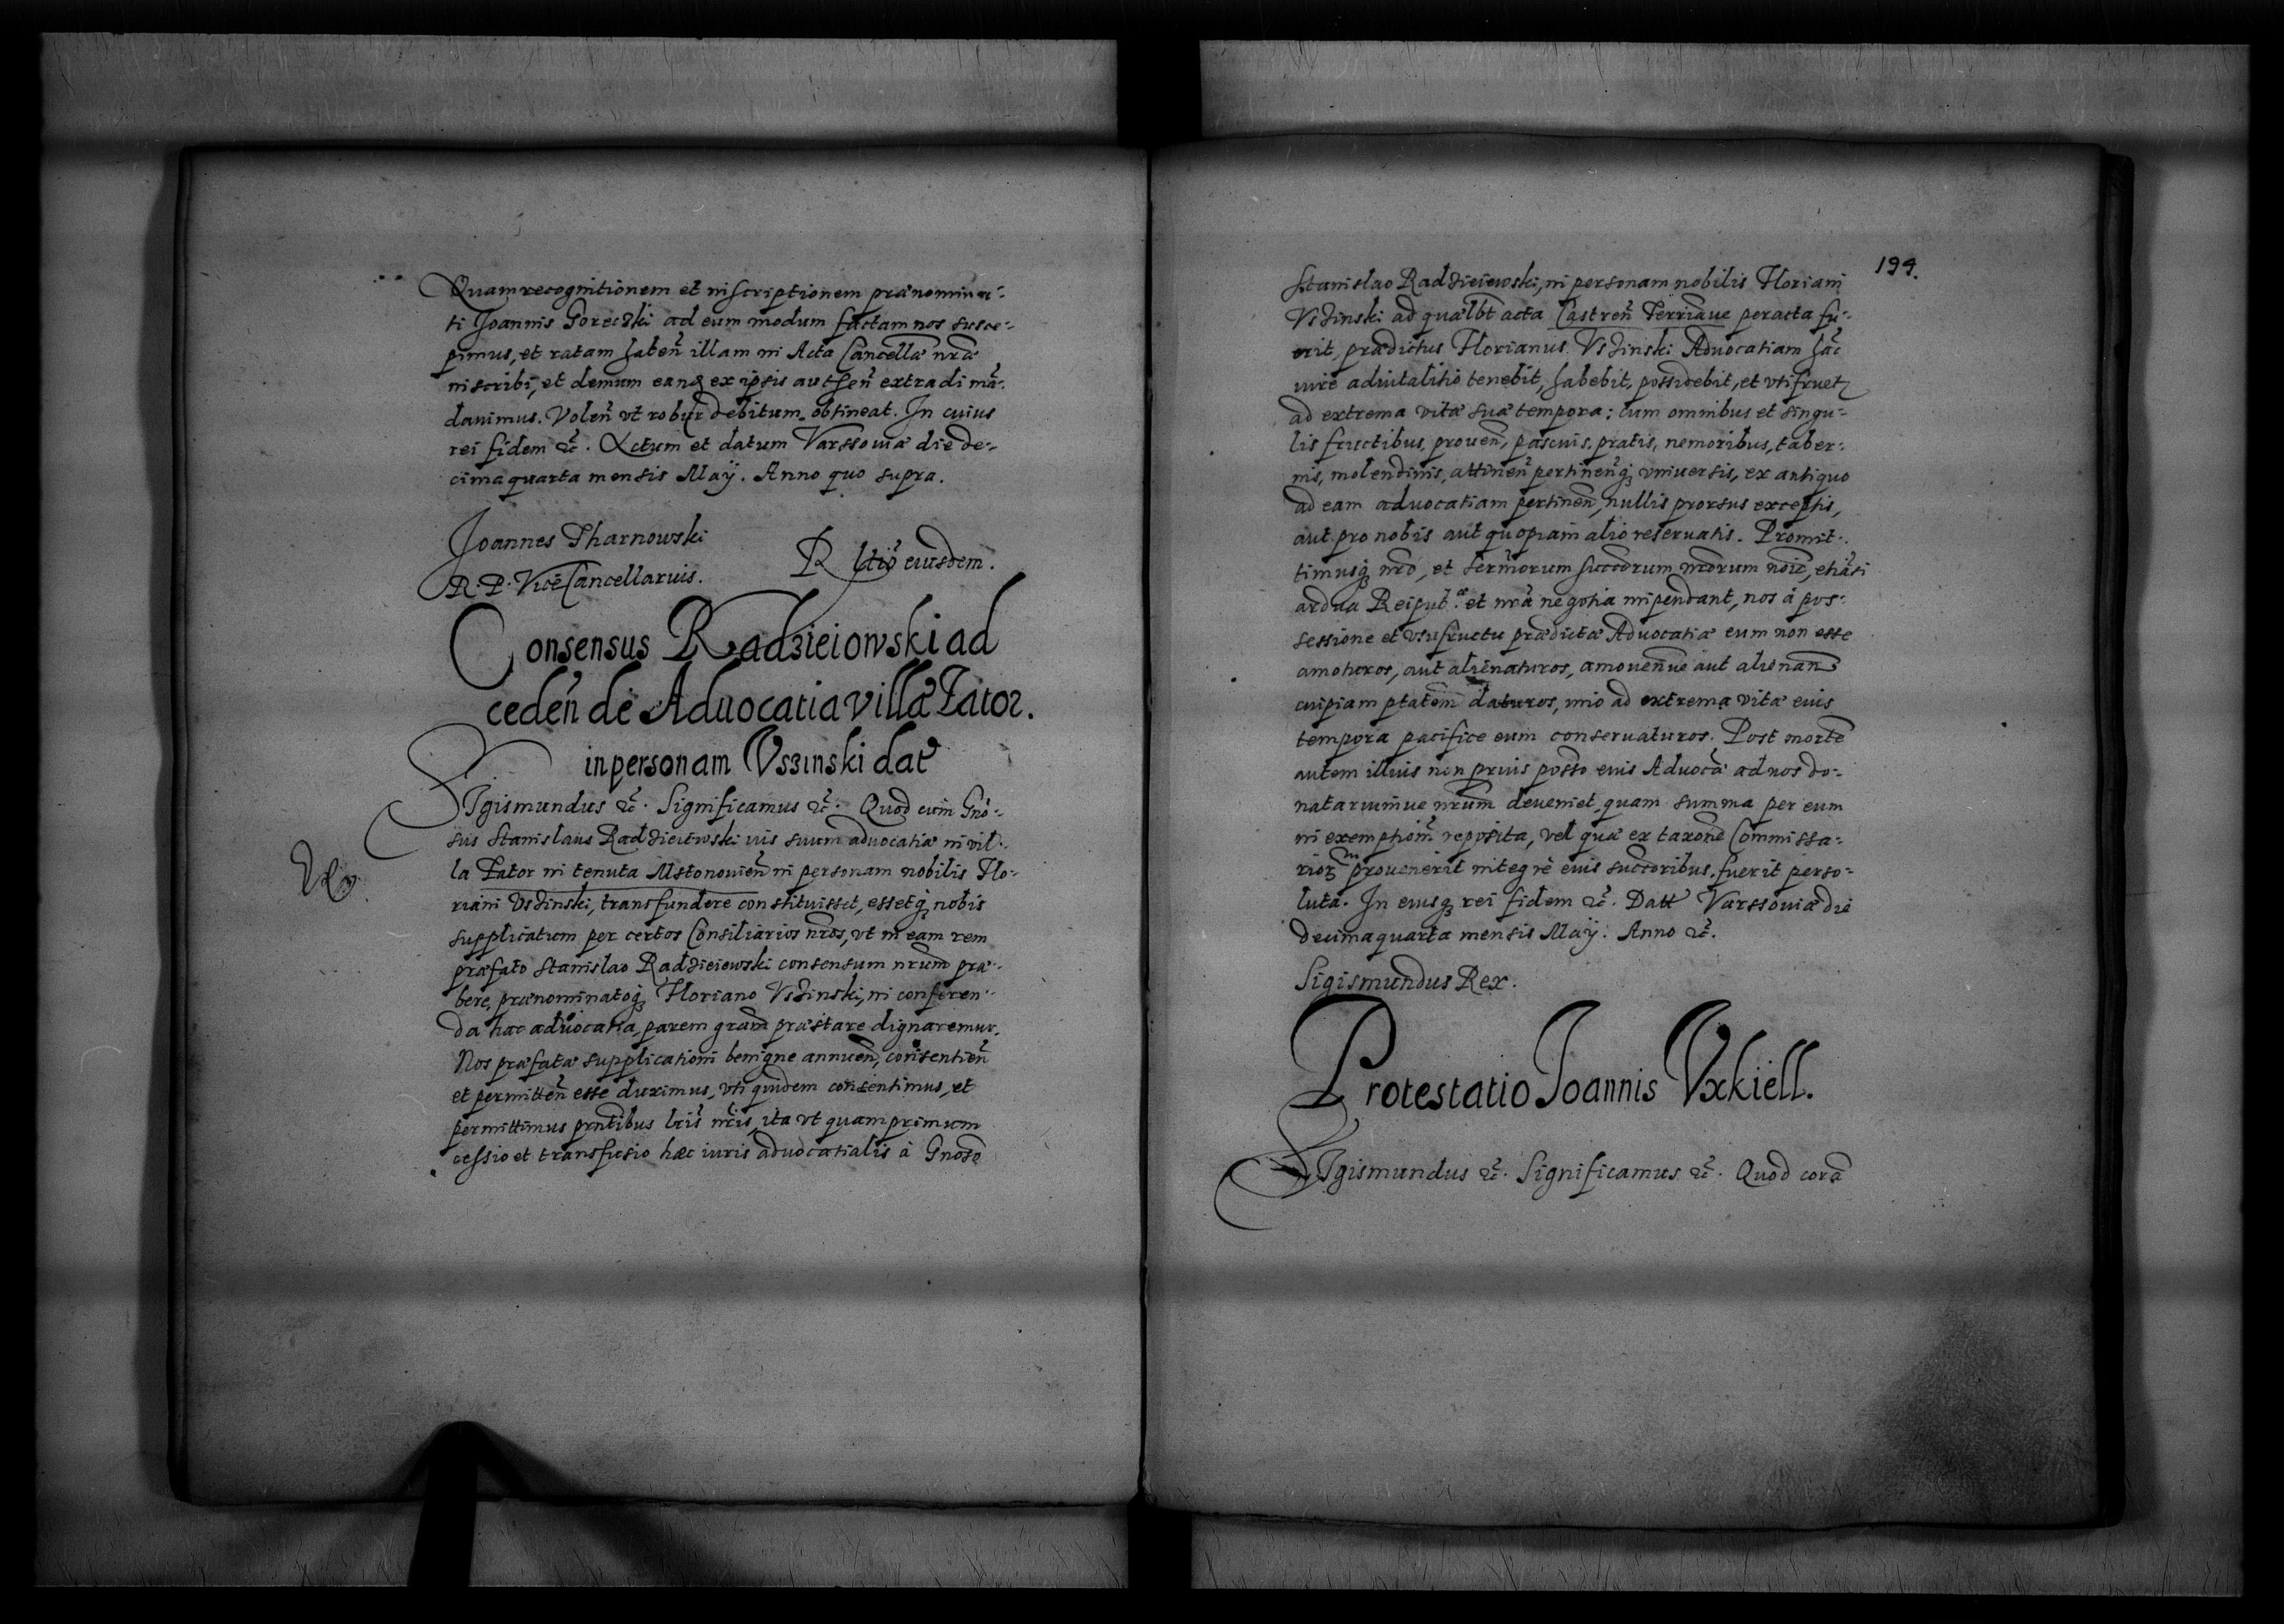 Quam recognitionem et inscriptionem prænomina-
ti Joannis Goreczki ad eum modum factam nos susce-
pimus, et ratam haben̄ illam in Acta Cancellæ nr̄æ
inscribi, et demum eandē ex ipsis authen̄ extradi mā-
davimus. Volen̄ vt robur debitum obtineat. In cuius
rei fidem &c̄. Actum et datum Varssoviæ die de-
cimaquarta mensis Maÿ. Anno quo supra.
Joannes Tharnowski
R. P. Vicecancellarius.
R ltio eiusdem.
Consensus Radzieiowski ad
ceden̄ de Aduocatia villæ Tator.
in personam Vszinski dat
SIgismundus &c̄. Significamus &c̄. Quod cum Gnō-
sus Stanislaus Radzieiewski ius suum advocatiæ in vil-
la Tator in tenuta Mstonouien̄ in personam nobilis Flo-
riani Vszinski, transfundere constituisset, essetq; nobis
supplicatum per certos Consiliarios nr̄os, vt in eam rem
præfato Stanislao Radzieiewski consensum nr̄um præ-
bere, prænominatoq; Floriano Vszinski, in conferen-
da hac aduocatia, parem gra͞m præstare dignaremur.
Nos præfatæ supplicationi benigne annuen̄, consentien̄
et permitten̄ esse duximus, vti quidem consentimus, et
permittimus pnt̄ibus lr̄is nr̄is, ita vt quamprimum
cessio et transfusio hæc iuris advocatialis à Gnoso
194.
Stanislao Radzieiewski, in personam nobilis Floriani
Vszinski ad quælbt acta Castren̄ Terrianue peracta fu-
erit, prædictus Florianus Vszinski Advocatiam hāc
iure aduitalitio tenebit, habebit, possidebit, et vtifruetz
ad extrema vitæ suæ tempora; cum omnibus et singu-
lis fructibus, prouen̄, pascuis, pratis, nemoribus, taber-
nis, molendinis, attinen̄ pertinen̄q; vniuersis, ex antiquo
ad eam advocatiam pertinen̄, nullis prorsus exceptis,
aut pro nobis aut quopiam alio reseruatis. Promit-
timusq; nr̄o, et Serm̄orum succ̄orum nr̄orum noīe, etiāsi
ardua Reipub. æ et nr̄a negotia impendant, nos à pos-
sessione et vsufructu prædictæ Advocatiæ eum non esse
amoturos, aut alienaturos, amouen̄ue aut alienan̄
cuipiam pt̄atem daturos, imo ad extrema vitæ eius
tempora pacifice eum conseruaturos. Post mortē
autem illius non prius poss̄o eius Advocā ad nos do-
natariumue nr̄um deueniet, quam summa per eum
in exemptiōn̄ reposita, vel quæ ex taxōne Commissa-
riorum prouenerit integrè eius succ̄oribus fuerit perso-
luta. In cuiusq; rei fidem &c̄. Datt Varssouiæ die
decimaquarta mensis Maÿ. Anno &c̄.
Sigismundus Rex.
Protestatio Joannis Vxkiell.
SIgismundus &c̄. Significamus &c̄. Quod corā